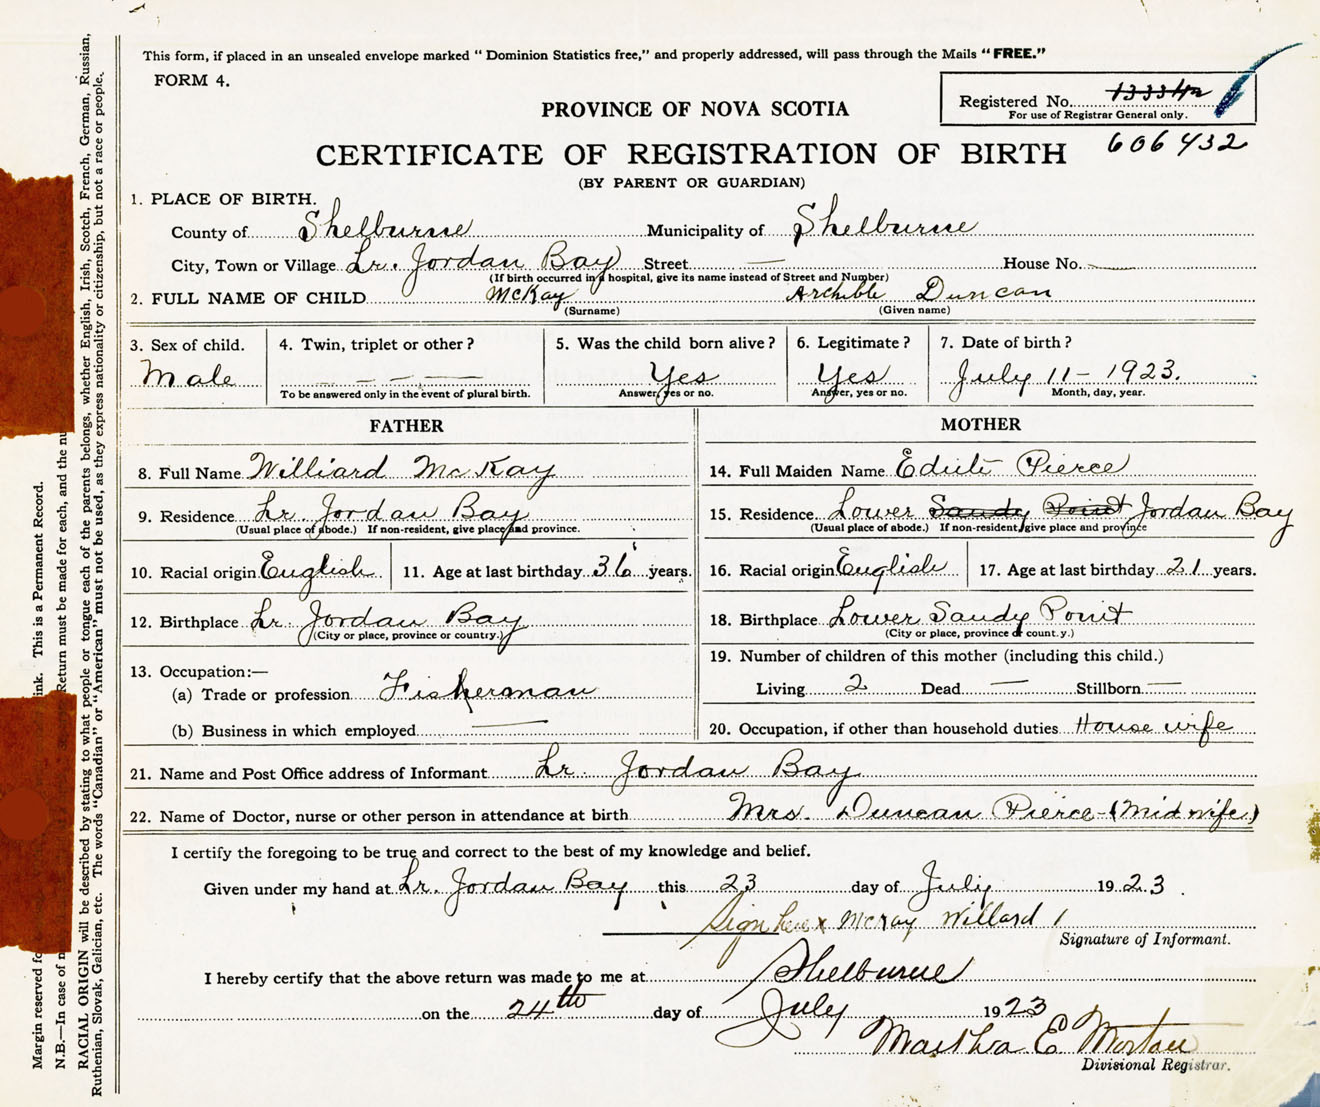 This form, if placed in an unsealed envelope marked “ Dominion Statistics free,” and properly addressed, will pass through the Mails “ FREE.”
FORM 4.
Registered No.
For use of Registrar General only.
606432
PROVINCE OF NOVA SCOTIA
CERTIFICATE OF REGISTRATION OF BIRTH
(BY PARENT OR GUARDIAN)
1. PLACE OF BIRTH.
County of Shelburne Municipality of Shelburne
City, Town or Village Lr. Jordan Bay Street — House No. —
(If birth occurred in a hospital, give its name instead of Street and Number)
2. FULL NAME OF CHILD McKay Archible Duncan
(Surname) (Given name)
3. Sex of child. 4. Twin, triplet or other? 5. Was the child born alive? 6. Legitimate? 7. Date of birth?
Male — — — — Yes Yes July 11 - 1923.
To be answered only in the event of plural birth. Answer, yes or no. Answer, yes or no. Month, day, year.
FATHER MOTHER
8. Full Name Williard McKay 14. Full Maiden Name Edith Pierce
9. Residence Lr. Jordan Bay 15. Residence Lower Sandy Point Jordan Bay
(Usual place of abode.) If non-resident, give place and province. (Usual place of abode.) If non-resident give place and province
10. Racial origin English 11. Age at last birthday 36 years. 16. Racial origin English 17. Age at last birthday 21 years.
12. Birthplace Lr. Jordan Bay 18. Birthplace Lower Sandy Point
(City or place, province or country.) (City or place, province or count.y.)
13. Occupation:— 19. Number of children of this mother (including this child.)
(a) Trade or profession Fisherman Living 2 Dead — Stillborn —
(b) Business in which employed — 20. Occupation, if other than household duties House wife
21. Name and Post Office address of Informant Lr. Jordan Bay
22. Name of Doctor, nurse or other person in attendance at birth Mrs. Duncan Pierce - (Mid wife.)
I certify the foregoing to be true and correct to the best of my knowledge and belief.
Given under my hand at Lr. Jordan Bay this 23 day of July 1923.
Sign here x McKay Willard
Signature of Informant.
I hereby certify that the above return was made to me at Shelburne
on the 24th day of July 1923
Martha E Morton
Divisional Registrar.
Margin reserved fo ink. This is a Permanent Record.
N.B.—In case of m Return must be made for each, and the nu
RACIAL ORIGIN will be described by stating to what people or tongue each of the parents belongs, whether English, Irish, Scotch, French, German, Russian,
Ruthenian, Slovak, Galician, etc. The words “Canadian” or “American” must not be used, as they express nationality or citizenship, but not a race or people.